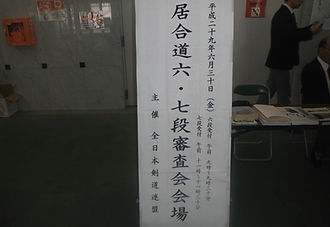 平成二十九年六月三十日(金)
六段受付 午前 九時~九時三十分
七段受付 午前 十一時~十一時三十分
居合道六・七段審査会会場
主催 全日本剣道連盟